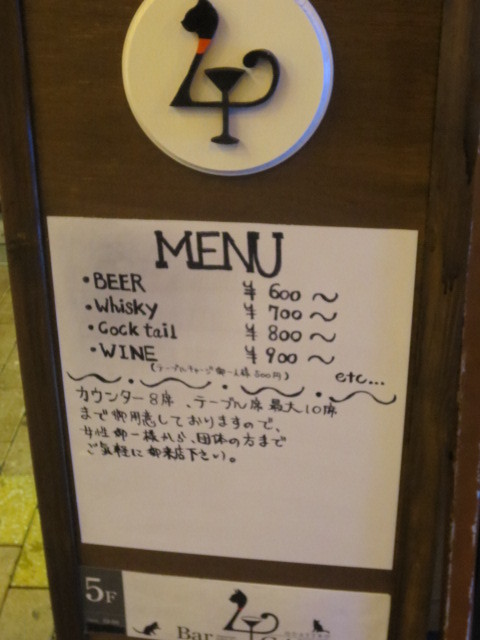 MENU
・BEER ¥ 600 〜
・Whisky ¥ 700 〜
・Cocktail ¥ 800 〜
・WINE ¥ 900 〜
(テーブルチャージ御一人様500円) etc...
カウンター8席、テーブル席最大10席
まで御用意しておりますので、
女性御一様から、団体の方まで
ご気軽に御来店下さい。
5F
Bar